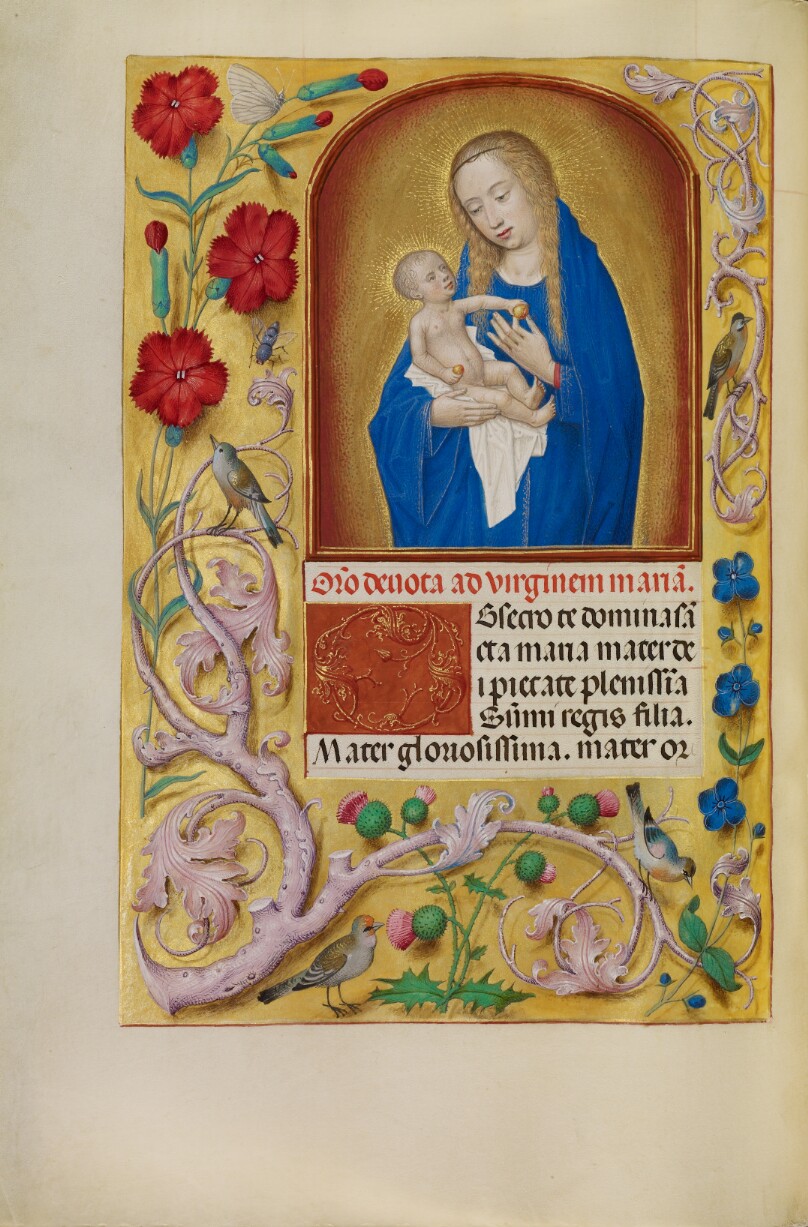 Orō deuota ad virginem mariā.
Obsecro te domina sā
cta maria mater de
i pietate plenissīa
Sūmi regis filia.
Mater gloriosissima. mater or